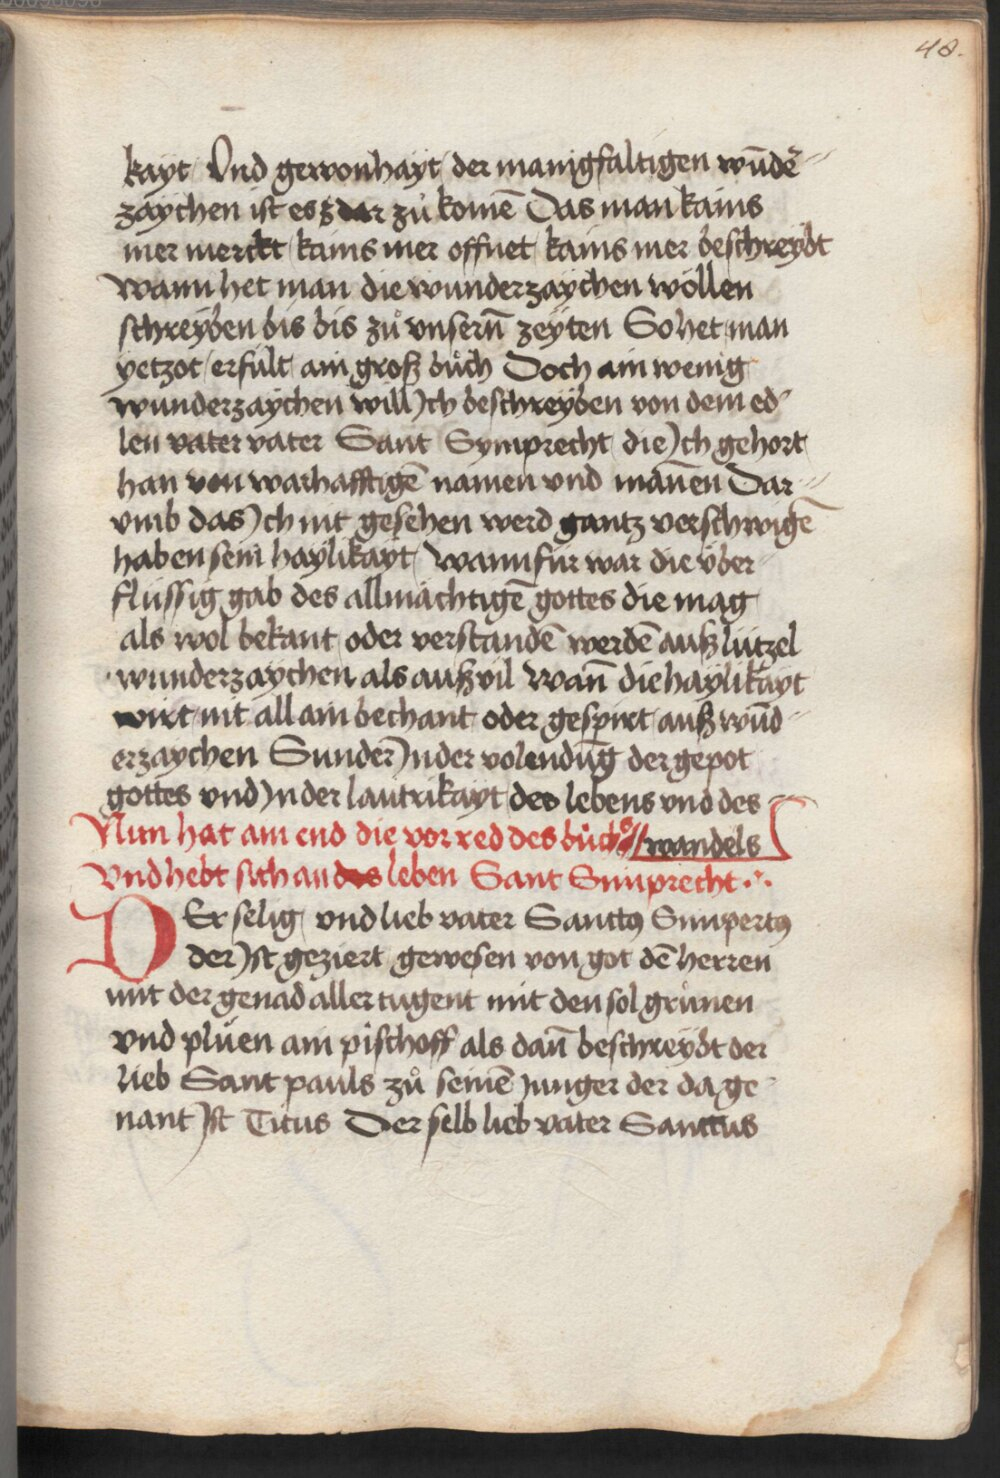 48.
kayt Vnd gewonhayt der manigfaltigen wūdē
zaychen ist es dar zů komē Das man kains
mer merckt kains mer offnet kains mer beschreybt
wann het man die wunderzaychen wöllen
schreyben bis bis zů vnsern̄ zeyten So het man
yetzot erfült ain groß bůch Doch ain wenig
wunderzaychen will Jch beschreyben von dem ed
len vater vater Sant Symprecht die Jch gehort
han von warhafftigē namen vnd man̄en Dar
vmb das Jch nit gesehen werd gantz verschwigē
haben sein haylikayt Wann für war die über
flüssig gab des allmächtigē gottes die mag
als wol bekant oder verstandē werdē auß lützel
wunderzaychen als auß vil Wan̄ die haylikayt
wirt nit allain bechant oder gespirt auß wūd
erzaychen Sunder Jn der volendūg der gepot
gottes vnd Jn der lautrikayt des lebens vnd des
wandels
Nun hat ain end die vor red des bůchs
Vnd hebt sich an das leben Sant Simprecht
DEr selig vnd lieb vater Sanctꝰ Simpertꝰ
der Jst geziert gewesen von got dē herren
mit der genad aller tugent mit den sol grünen
vnd plüen ain pischoff als dan̄ beschreybt der
lieb Sant pauls zů seinē Junger der da ge
nant Jst Titus Der selb lieb vater Sanctus